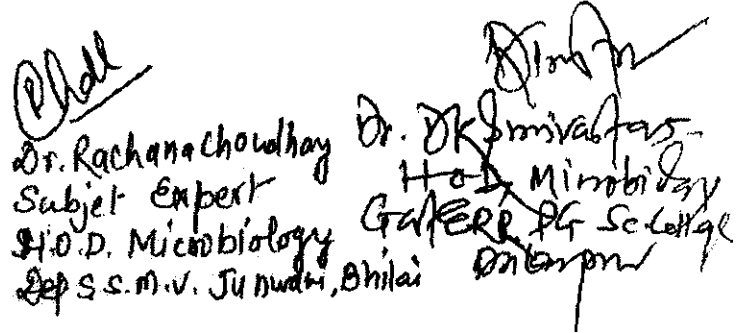 Dr. Rachana Choudhay
Subjet Expert
H.O.D. Microbiology
Dep S.S.M.V. Junwani, Bhilai
Dr. DK Srivastav
H.O.D. Microbiology
PG Sc College